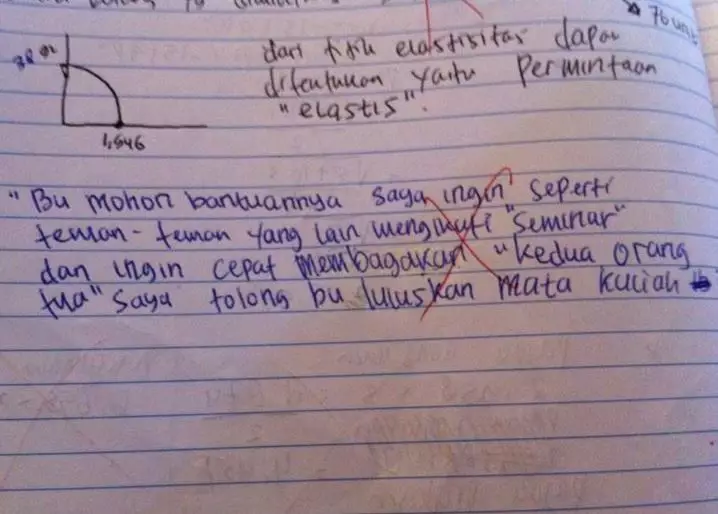 76 unit
dari titik elastisitas dapat
ditentukan yaitu Permintaan
"elastis".
1,546
"Bu mohon bantuannya saya ingin seperti
teman-teman yang lain mengikuti "Seminar"
dan ingin cepat membagakan "kedua orang
tua" saya tolong bu luluskan mata kuliah